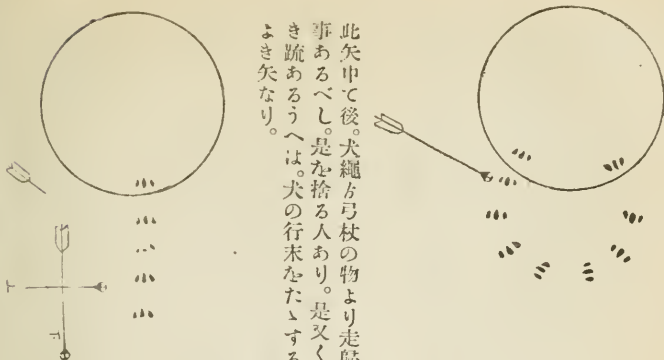 此矢中て後。犬繩ゟ弓杖の物より走
事あるべし。是を捨る人あり。是又く
き䟽あるうへは。犬の行末をたゝする
よき矢なり。